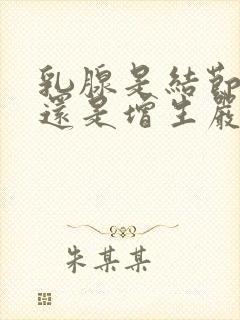 乳腺是結節
還是增生嚴
朱某某